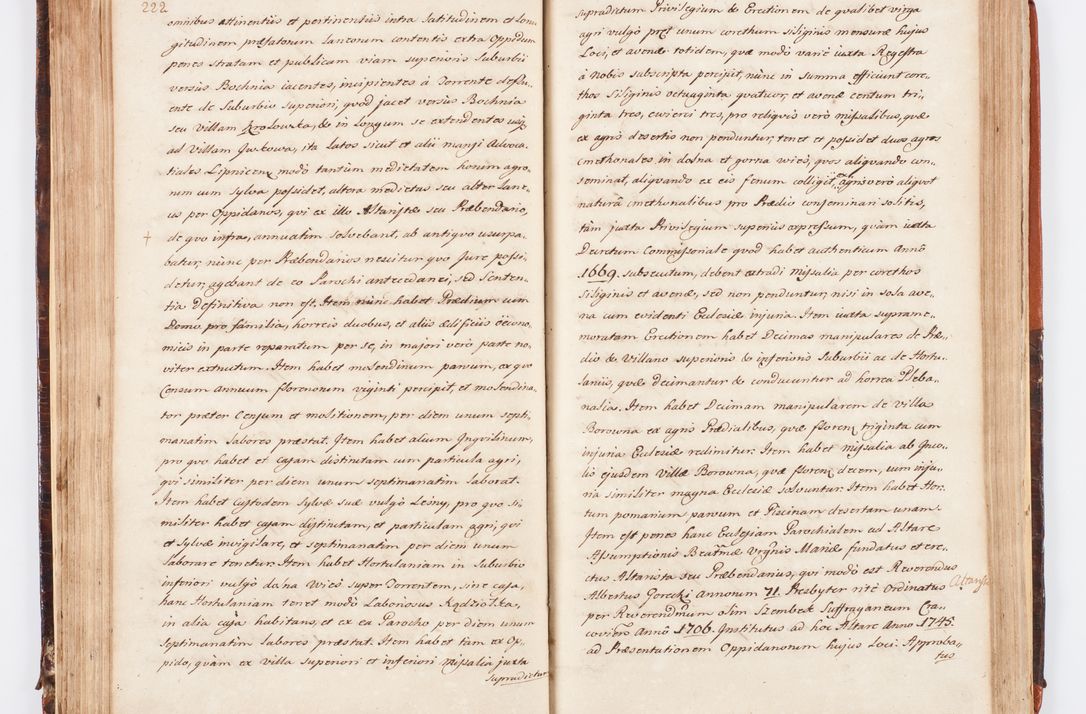 222
omnibus attinentiis et pertinentiis intra latitudinem et lon„
gitudinem præfatorum laneorum contentis extra Oppidum
penes stratam et publicam viam superioris Suburbii
versus Bochnia iacentes, incipientes à Torrente deflu„
ente de Suburbio superiori, qvod jacet versus Bochnia
seu villam Krolowska, & in longum se extendentes usq
ad villam Gwkowa, ita latos sicut et alii mansi Advoca„
tiales Lipnicen modò tantùm medietatem horum agro„
rum cum sylva possidet, altera medietas seu alter lane„
us per Oppidanos, qvi ex illo Altaristæ seu Præbendario,
de qvo infra, annuatim solvebant, ab antiqvo usurpa„
batur, nunc per Præbendarios nescitur qvo jure possi„
detur, agebant de eo Parochi antecedanei, sed Senten„
tia definitiva non est. Item nunc habet Prædium cum
Domo pro familia, horreis duobus, et aliis ædificiis œcono„
micis in parte reparatum per se, in majori verò parte no„
viter extructum. Item habet molendinum parvum, ex qvo
Censum annuum florenorum viginti percipit, et molendina„
tor præter Censum et molitionem, per diem unum septi„
manatim labores præstat. Item habet alium Inqvilinum,
pro qvo habet et casam distinctam cum particula agri,
qvi similiter per diem unum septimanatim laborat.
Item habet custodem Sylvæ suæ vulgò Leśny, pro qvo si„
militer habet casam distinctam, et particulam agri, qvi
et sylvæ invigilare, et septimanatim per diem unum
laborare tenetur. Item habet Hortulaniam in Suburbio
inferiori vulgò dolna Wies super Torrentem, sine casa,
hanc Hortulaniam tenet modò Laboriosus Kądziołka,
in alia casa habitans, et ex ea Parocho per diem unum
septimanatim labores præstat. Item habet tam ex Op„
pido, qvàm ex villa superiori et inferiori missalia juxta
supradictum
supradictum Privilegium & Erectionem de qvalibet virga
agri vulgò pręt unum corethum siliginis mensuræ hujus
Loci, et avenæ totidem, qvæ modò variè iuxta Regestra
à nobis subscripta percipit, nunc in summa efficiunt core„
thos siliginis octuaginta qvatuor, et avenæ centum tri„
ginta tres, cwierci tres, pro reliqvis verò missalibus, qvæ
ex agris desertis non penduntur, tenet et possidet duos agros
cmethonales in dolna et gorna wies, qvos aliqvando con„
seminat, aliqvando ex eis fenum colligit, agris verò aliqvot
naturâ cmethonalibus pro Prædio conseminari solitis,
tàm juxta Privilegium superius expressum, qvàm iuxta
Decretum Commissoriale qvod habet authenticum Annô
1669. subsecutum, debent extradi missalia per corethos
siliginis et avenæ, sed non penduntur, nisi in sola ave„
na cum evidenti Ecclesiæ injuria. Item iuxta suprame„
moratam Erectionem habet Decimas manipulares de Præ„
dio & Villano superioris & inferioris Suburbii ac de Hortu„
laniis, qvæ decimantur & conducuntur ad horrea Pleba„
nalia. Item habet Decimam manipularem de villa
Borowna ex agris Prædialibus, qvæ floren triginta cum
injuria Ecclesiæ redimitur. Item habet missalia ab Inco„
lis ejusdem villæ Borowna, qvæ floren decem, cum inju„
ria similiter magna Ecclesiæ solvuntur. Item habet Hor„
tum pomarium parvum et Piscinam desertam unam.
Item est penes hanc Ecclesiam Parochialem ad Altare
Assumptionis Beatmæ Vrgnis Mariæ fundatus et ere„
ctus Altarista seu Præbendarius, qvi modò est Reverendus
Albertus Gorecki Annorum 71. Presbyter ritè Ordinatus
Altarista
per Reverendmum olim Szembek Suffraganeum Cra„
covien Annô 1706. Institutus ad hoc Altare Annô 1745.
ad Præsentationem Oppidanorum hujus Loci. Approba„
tus